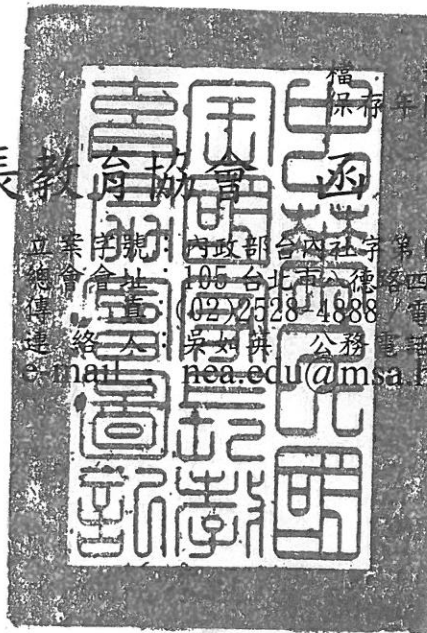 檔
保存年
長教育協會 函
立案字號：內政部台內社字第
總會會址：105 台北市八德路四
傳 真：(02)2528-4888 電
連 絡 人：吳如 公務電話
e-mail： nea.edu@msa.
中華民國
全國家長教
育協會圖記